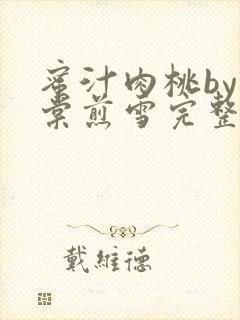 蜜汁肉桃by
棠煎雪完整
戴維德